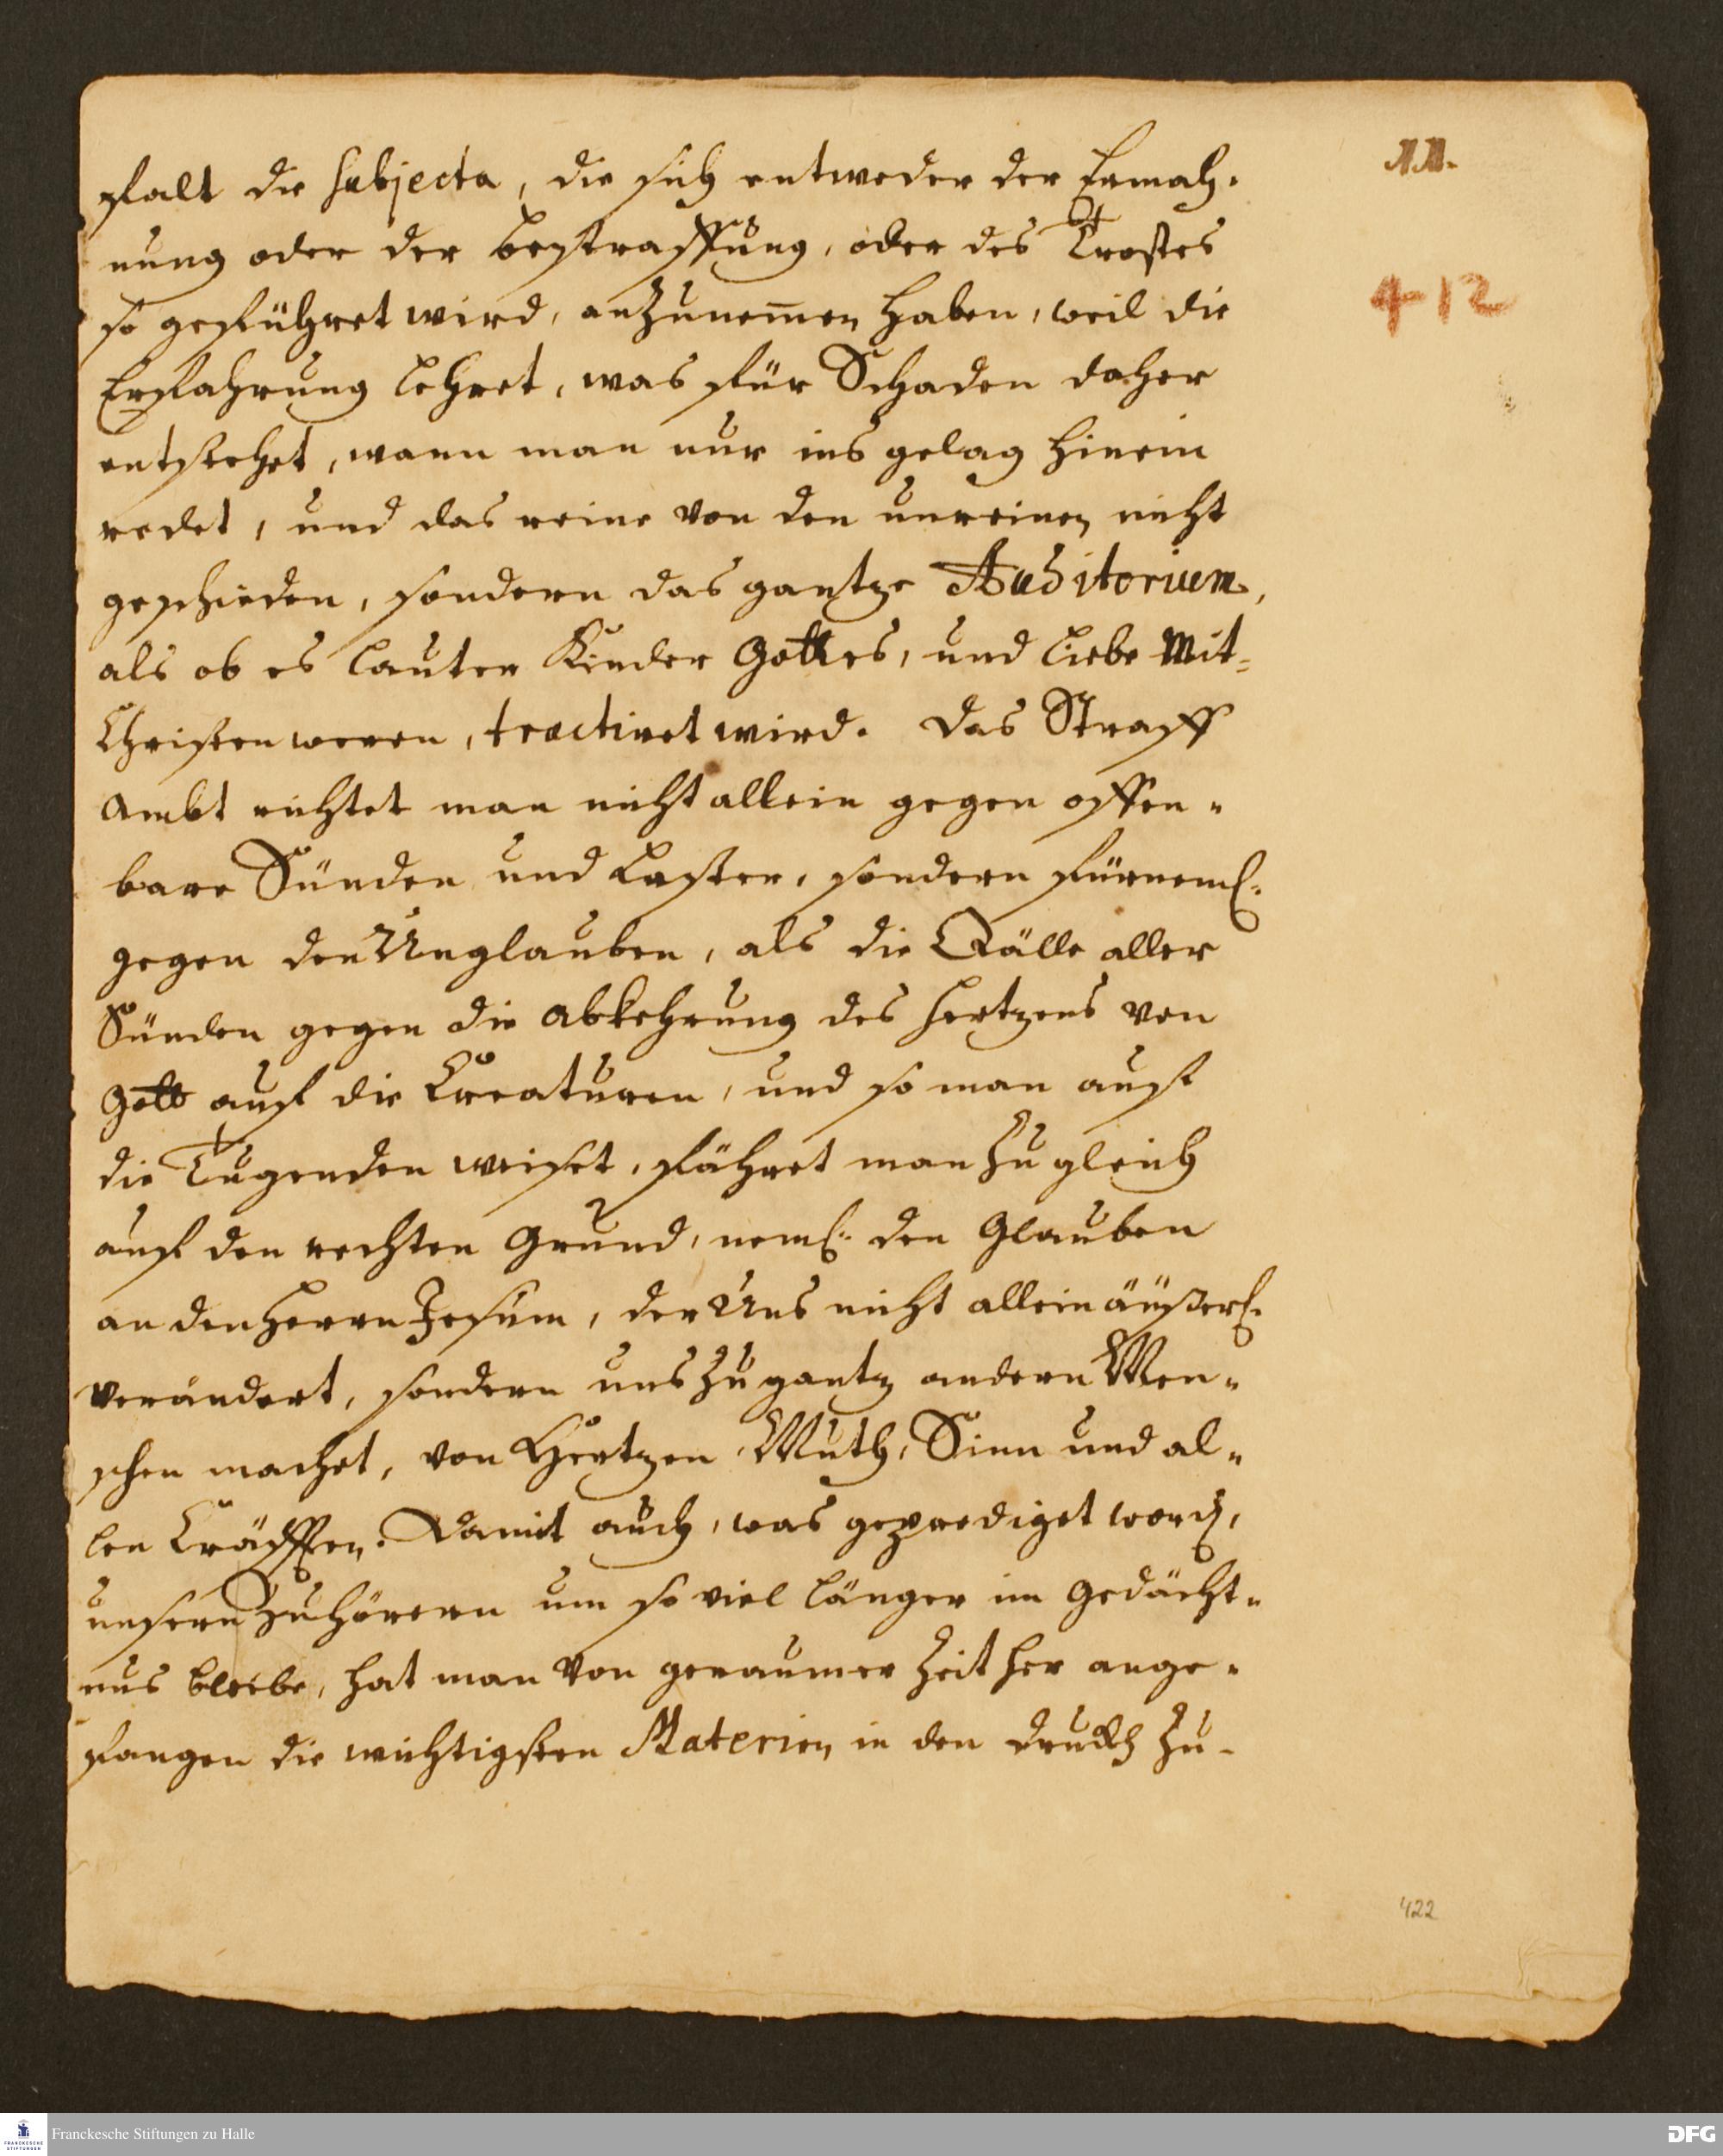 11.
412
falt die subjecta, die sich entweder der Ermah-
nung oder der bestraffung, oder des Trostes
so geführet wird, anzunem̄en haben, weil die
Erfahrung lehret, was für Schaden daher
entstehet, wann man nur ins gelag hinein
redet, und das reine von den unreinen nicht
geschieden, sondern das gantze Auditorium,
als ob es lauter Kinder Gottes, und liebe Mit-
Christen weren, tractiret wird. Das Straff
Ambt richtet man nicht allein gegen offen-
bare Sünden und Laster, sondern fürneml.
gegen den Unglauben, als die Qälle aller
Sünden gegen die abkehrung des Hertzens von
Gott auf die Creaturen, und so man auf
die Tugenden weiset, führet man zu gleich
auf den rechten Grund, neml. den Glauben
an den Herrn Jesum, der Uns nicht allein äüßerl.
verändert, sondern uns zu gantz andern Men-
schen machet, von Hertzen, Muth, Sinn und al-
len Cräfften. Damit auch, was geprediget word,
unsern Zuhörern um so viel länger im Gedächt-
nus bleibe, hat man von geraumer Zeit her ange-
fangen die wichtigsten Materien in den druckh zu-
422
Franckesche Stiftungen zu Halle
FRANCKESCHE STIFTUNGEN
DFG